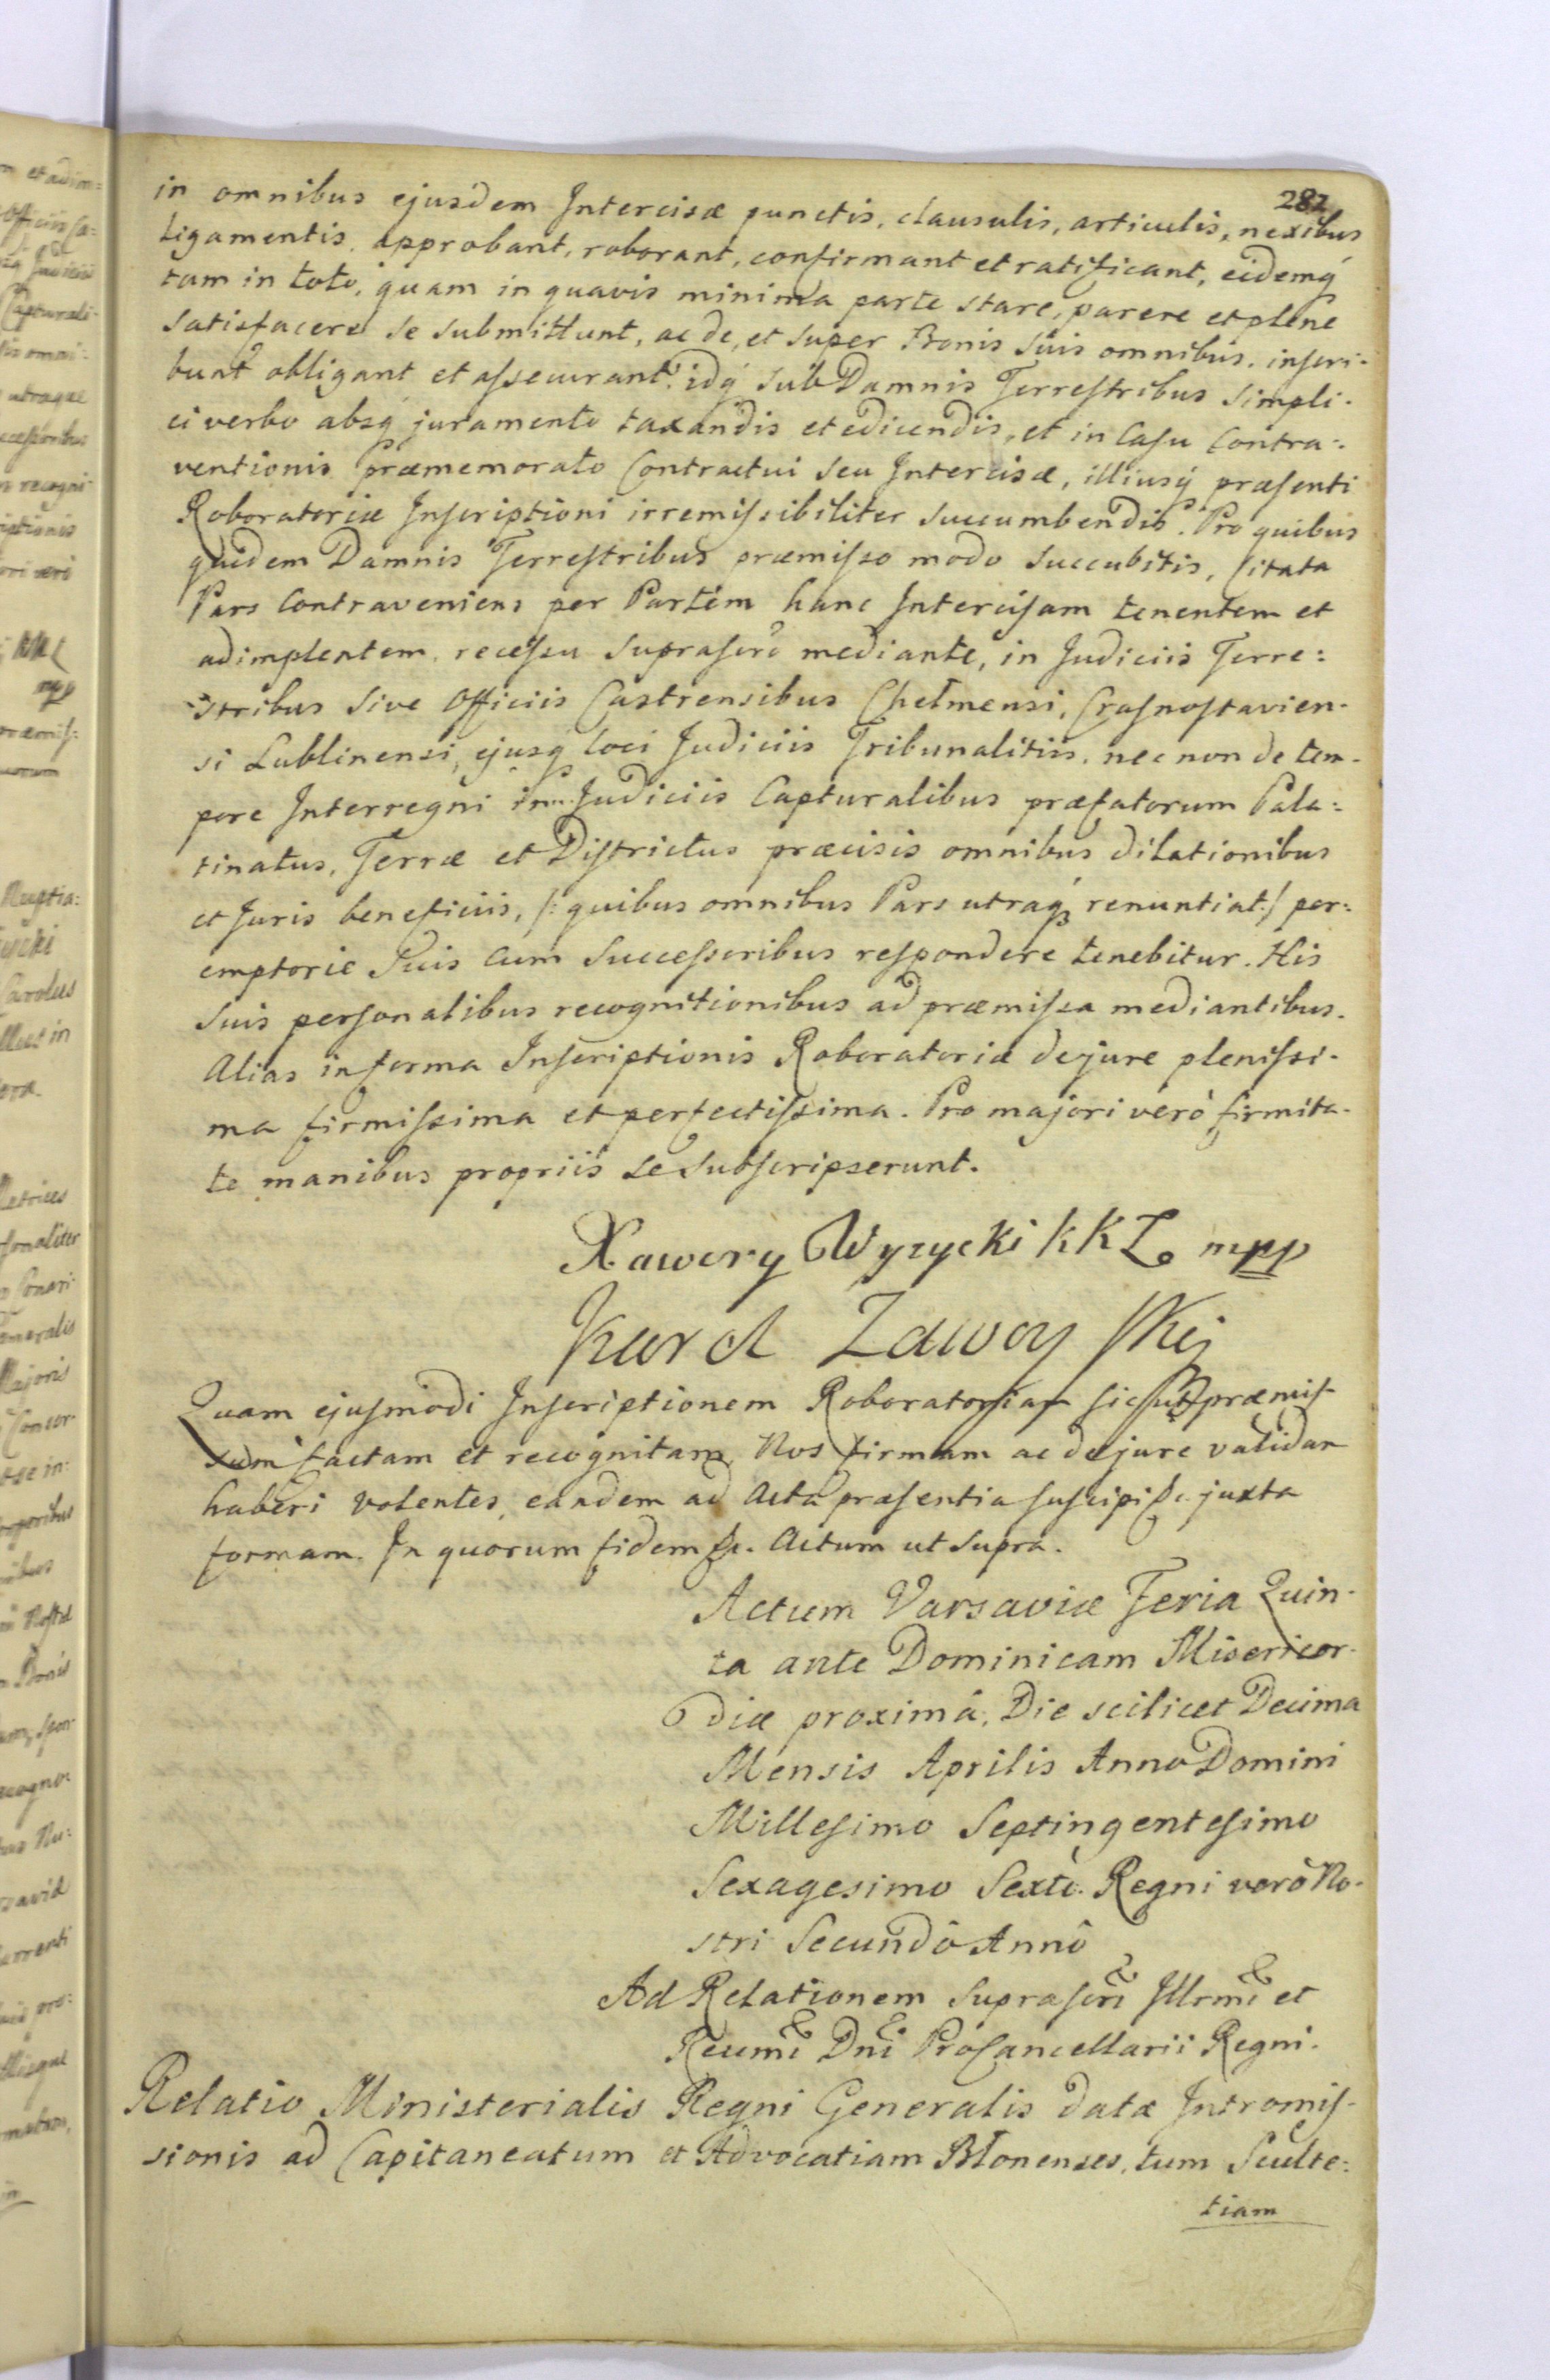 282
in omnibus ejusdem Intercisæ punctis, clausulis, articulis, nexibus
Ligamentis approbant, roborant, confirmant et ratificant, eidemq́
tam in toto, quam in quavis minima parte stare, parere et plene
satisfacere se submittunt, ac de, et super Bonis suis omnibus inscri-
bunt obligant et assecurant. idq́ sub Damnis Terrestribus simpli-
ci verbo absq́ juramento taxandis et edicendis, et in Casu Contra:
ventionis præmemorato Contractui seu Intercisæ, illiusq́ præsenti
Roboratoriæ Inscriptioni irremissibiliter succumbendis. Pro quibus
quidem Damnis Terrestribus præmisso modo succubitis, Citata
Pars Contraveniens per Partem hanc Intercisam tenentem et
adimplentem, recessu suprascrõ mediante, in Judiciis Terre:
stribus sive Officiis Castrensibus Chełmensi, Crasnostavien-
si Lublinensi, ejusq́ loci Judiciis Tribunalitiis, nec non de tem-
pore Interregni in Judiciis Capturalibus præfatorum Pala:
tinatus, Terræ et Districtus præcisis omnibus dilationibus
et Juris beneficiis, /: quibus omnibus Pars utraq́ renuntiat :/ per:
emptorie suis cum Successoribus respondere tenebitur. His
suis personalibus recognitionibus ad præmissa mediantibus.
Alias in forma Inscriptionis Roboratoriæ de jure plenissi-
ma firmissima et perfectissima. Pro majori verò firmita-
te manibus propriis se subscripserunt.
Xawery Wyzycki KKL mpp
Karol Zawoyski
Quam ejusmodi Inscriptionem Roboratoriam sic ut præmis-
sum factam et recognitam, Nos firmam ac de jure validam
haberi volentes, eandem ad Acta præsentia suscipi &c. juxta
formam. In quorum fidem &c. Actum ut supra.
Actum Varsaviæ Feria Quin-
ta ante Dominicam Misericor-
diæ proximâ, Die scilicet Decima
Mensis Aprilis Anno Domini
Millesimo Septingentesimo
Sexagesimo Sextô. Regni verò No-
stri Secundô Annô
Ad Relationem suprascrĩ Illrmĩ et
Rcumĩ Dnĩ ProCancellarii Regni.
Relatio Ministerialis Regni Generalis datæ Intromis-
sionis ad Capitaneatum et Advocatiam Błonenses, tum Sculte:
tiam